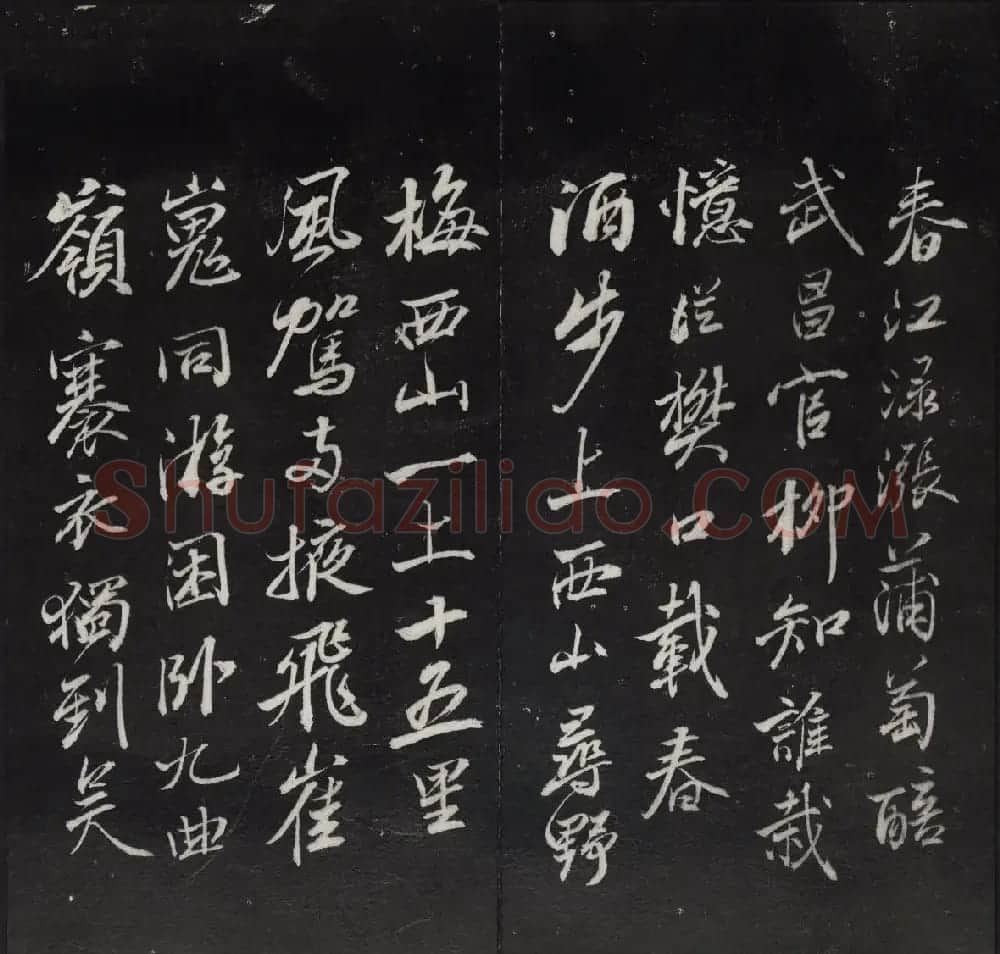 春江渌漲蒲萄醅
武昌官柳知誰栽
憶從樊口載春
酒步上西山尋野
梅西山一上十五里
風駕兩掖飛崔
嵬同游困卧九曲
嶺褰衣獨到吴
Shufazilido.COM